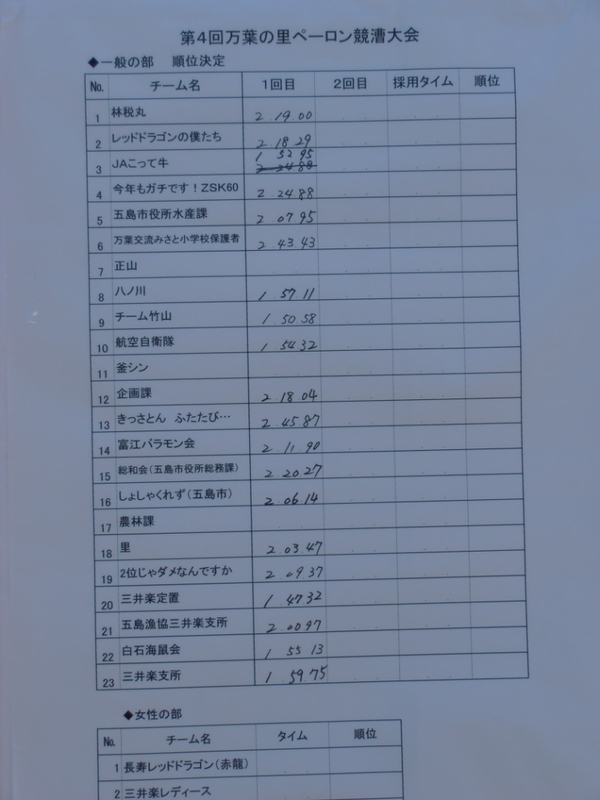 第4回万葉の里ペーロン競漕大会
◆一般の部 順位決定
No. チーム名 1回目 2回目 採用タイム 順位
1 林税丸 2 19 00
2 レッドドラゴンの僕たち 2 18 29
3 JAこって牛 1 52 95 2 24 88
4 今年もガチです！ZSK60 2 24 88
5 五島市役所水産課 2 07 95
6 万葉交流みさと小学校保護者 2 43 43
7 正山
8 ハノ川 1 57 11
9 チーム竹山 1 50 58
10 航空自衛隊 1 54 32
11 釜シン
12 企画課 2 18 04
13 きっさとん ふたたび… 2 45 87
14 富江バラモン会 2 11 90
15 総和会（五島市役所総務課） 2 20 27
16 しょしゃくれず（五島市） 2 06 14
17 農林課
18 里 2 03 47
19 2位じゃダメなんですか 2 09 37
20 三井楽定置 1 47 32
21 五島漁協三井楽支所 2 00 97
22 白石海鼠会 1 55 13
23 三井楽支所 1 59 75
◆女性の部
No. チーム名 タイム 順位
1 長寿レッドドラゴン（赤龍）
2 三井楽レディース